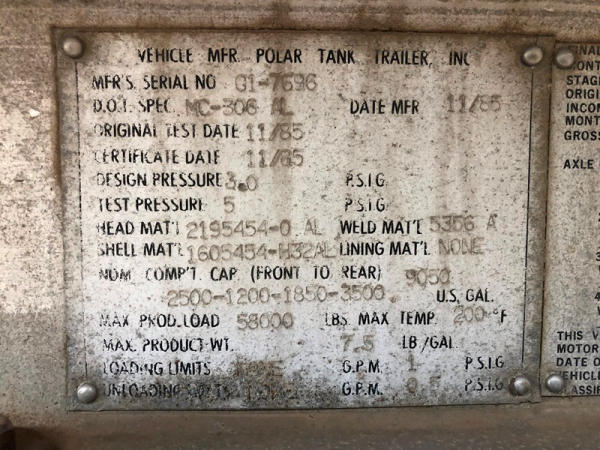 VEHICLE MFR. POLAR TANK TRAILER, INC
MFR'S. SERIAL NO 01-7696
D.O.T. SPEC. MC-306 AL DATE MFR 11/85
ORIGINAL TEST DATE 11/85
CERTIFICATE DATE 11/85
DESIGN PRESSURE 3.0 P.S.I.G.
TEST PRESSURE 5 P.S.I.G.
HEAD MAT'L 2195454-0 AL WELD MAT'L 5356 A
SHELL MAT'L 1605454-H32AL LINING MAT'L NONE
NOM. COMP'T. CAP. (FRONT TO REAR) 9050
2500-1200-1850-3500 U.S. GAL.
MAX PROD. LOAD 58000 LBS. MAX TEMP. 200 °F
MAX. PRODUCT WT. 7.5 LB/GAL.
LOADING LIMITS G.P.M. 1 P.S.I.G
UNLOADING G.P.M. P.S.I.G
STAG
ORIGI
INCOM
MONT
GROSS
AXLE
THIS V
MOTOR
DATE O
VEHICLE